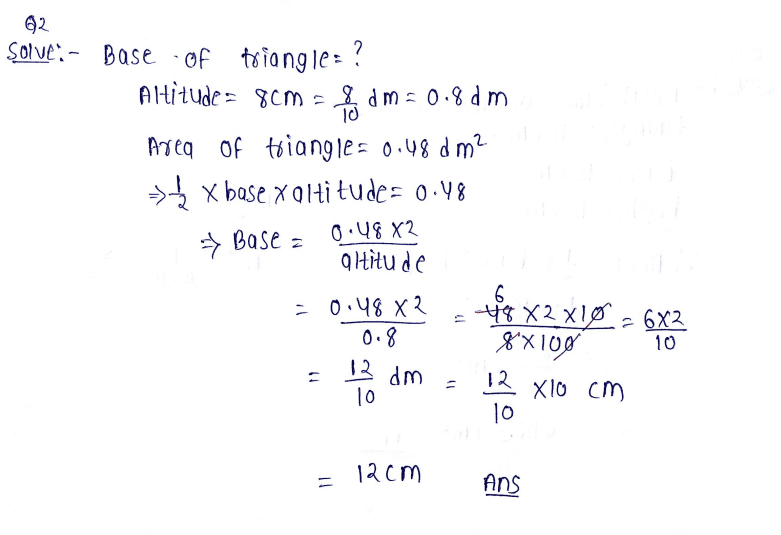 Q2
Solve:- Base of triangle = ?
Altitude = 8cm = 8/10 dm = 0.8 dm
Area of triangle = 0.48 dm²
⇒ 1/2 × base × altitude = 0.48
⇒ Base = 0.48 × 2 / altitude
= 0.48 × 2 / 0.8 = 6 48 × 2 × 10 / 8 × 100 = 6×2 / 10
= 12/10 dm = 12/10 × 10 cm
= 12cm Ans